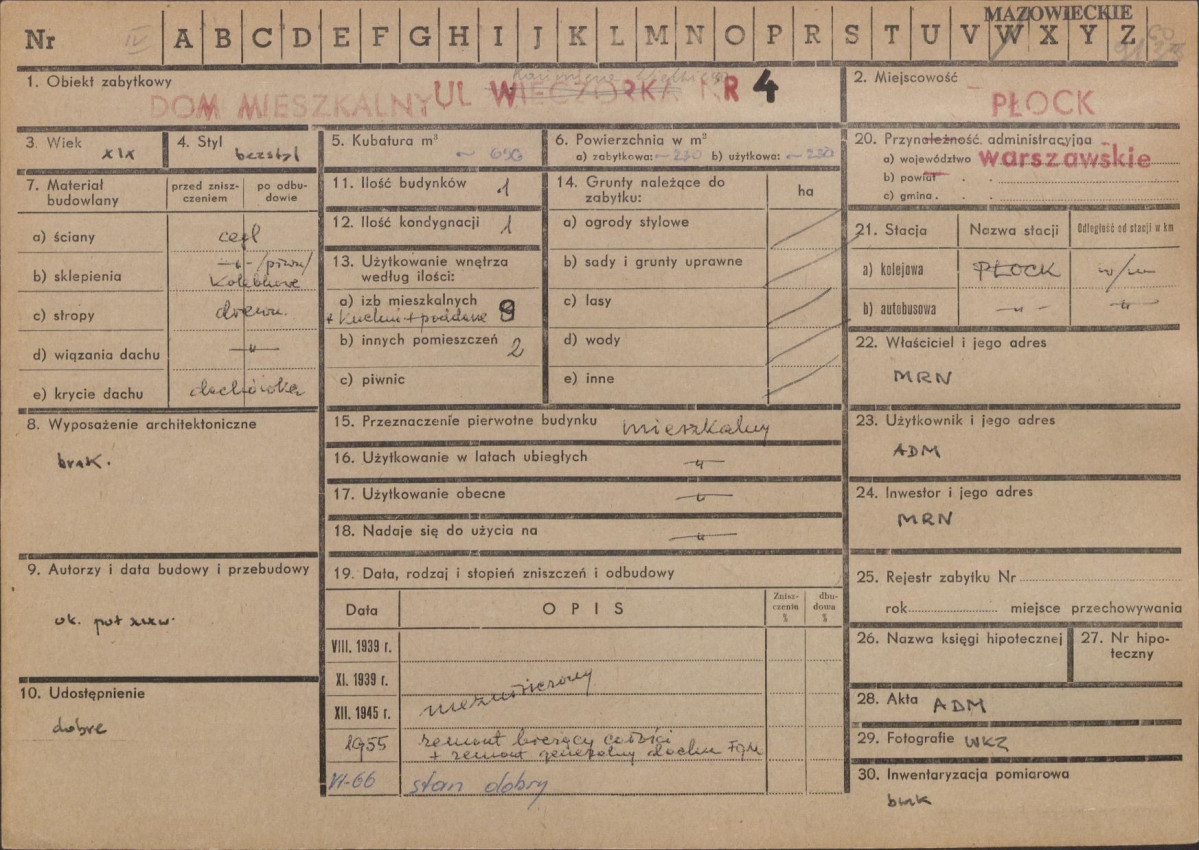 MAZOWIECKIE
Nr IV A B C D E F G H I J K L M N O P R S T U V W X Y Z
1. Obiekt zabytkowy
DOM MIESZKALNY UL WIECZORKA NR 4
2. Miejscowość
PŁOCK
3. Wiek XIX
4. Styl bezstyl
5. Kubatura m³ ~ 690
6. Powierzchnia w m²
a) zabytkowa: ~ 230 b) użytkowa: ~ 230
20. Przynależność administracyjna
a) województwo warszawskie
b) powiat
c) gmina
7. Materiał budowlany
przed zniszczeniem
po odbudowie
a) ściany cegl
b) sklepienia -„- /piwn/
Kolebkowe
c) stropy drewn.
d) wiązania dachu -„-
e) krycie dachu dachówka
11. Ilość budynków 1
12. Ilość kondygnacji 1
13. Użytkowanie wnętrza
według ilości:
a) izb mieszkalnych 9
+ kuchni + poddasze
b) innych pomieszczeń 2
c) piwnic
14. Grunty należące do
zabytku:
ha
a) ogrody stylowe
b) sady i grunty uprawne
c) lasy
d) wody
e) inne
21. Stacja
Nazwa stacji
Odległość od stacji w km
a) kolejowa PŁOCK w/m
b) autobusowa -„- -„-
22. Właściciel i jego adres
MRN
8. Wyposażenie architektoniczne
brak.
15. Przeznaczenie pierwotne budynku mieszkalny
16. Użytkowanie w latach ubiegłych -„-
17. Użytkowanie obecne -„-
18. Nadaje się do użycia na -„-
23. Użytkownik i jego adres
ADM
24. Inwestor i jego adres
MRN
9. Autorzy i data budowy i przebudowy
ok. poł XIXw.
10. Udostępnienie
dobre
19. Data, rodzaj i stopień zniszczeń i odbudowy
Data
OPIS
Zniszczenia %
dbudowa %
VIII. 1939 r.
XI. 1939 r.
XII. 1945 r.
niezniszczony
1955 remont bieżący całości
+ remont generalny dachu FGM
VI-66 stan dobry
25. Rejestr zabytku Nr
rok miejsce przechowywania
26. Nazwa księgi hipotecznej
27. Nr hipoteczny
28. Akta ADM
29. Fotografie WKZ
30. Inwentaryzacja pomiarowa
brak